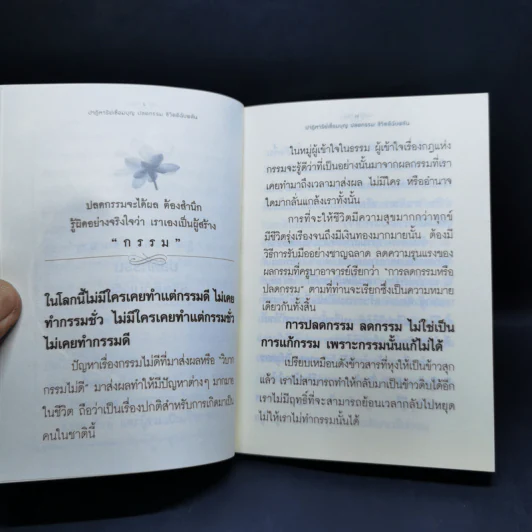 ปาฏิหาริย์เชื่อมบุญ ปลดกรรม ชีวิตดีฉับพลัน
ปลดกรรมจะได้ผล ต้องสำนึก
รู้ผิดอย่างจริงใจว่า เราเองเป็นผู้สร้าง
“ กรรม ”
ในโลกนี้ไม่มีใครเคยทำแต่กรรมดี ไม่เคย
ทำกรรมชั่ว ไม่มีใครเคยทำแต่กรรมชั่ว
ไม่เคยทำกรรมดี
ปัญหาเรื่องกรรมไม่ดีที่มาส่งผลหรือ “วิบาก
กรรมไม่ดี” มาส่งผลทำให้มีปัญหาต่างๆ มากมาย
ในชีวิต ถือว่าเป็นเรื่องปกติสำหรับการเกิดมาเป็น
คนในชาตินี้
ปาฏิหาริย์เชื่อมบุญ ปลดกรรม ชีวิตดีฉับพลัน
ในหมู่ผู้เข้าใจในธรรม ผู้เข้าใจเรื่องกฎแห่ง
กรรมจะรู้ดีว่าที่เป็นอย่างนั้นมาจากผลกรรมที่เรา
เคยทำมาถึงเวลามาส่งผล ไม่มีใคร หรืออำนาจ
ใดมากลั่นแกล้งเราทั้งนั้น
การที่จะให้ชีวิตมีความสุขมากกว่าทุกข์
มีชีวิตรุ่งเรืองจนถึงมีเงินทองมากมายนั้น ต้องมี
วิธีการรับมืออย่างชาญฉลาด ลดความรุนแรงของ
ผลกรรมที่ครูบาอาจารย์เรียกว่า “การลดกรรมหรือ
ปลดกรรม” ตามที่ท่านจะเรียกซึ่งเป็นความหมาย
เดียวกันทั้งสิ้น
การปลดกรรม ลดกรรม ไม่ใช่เป็น
การแก้กรรม เพราะกรรมนั้นแก้ไม่ได้
เปรียบเหมือนดังข้าวสารที่หุงให้เป็นข้าวสุก
แล้ว เราไม่สามารถทำให้กลับมาเป็นข้าวดิบได้อีก
เราไม่มีฤทธิ์ที่จะสามารถย้อนเวลากลับไปหยุด
ไม่ให้เราไม่ทำกรรมนั้นได้